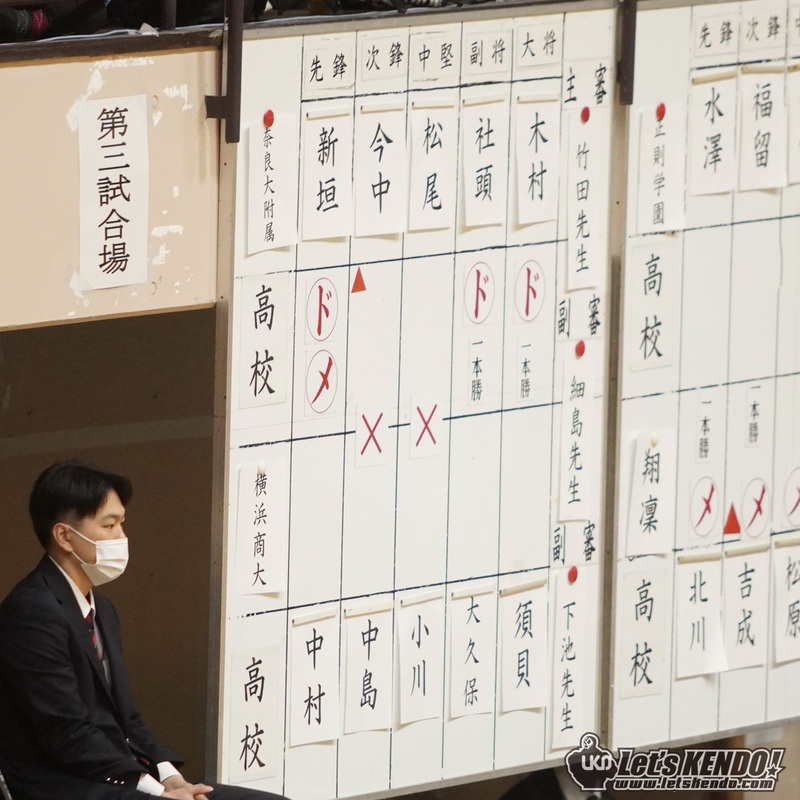 第三試合場
先鋒 次鋒 中堅 副将 大将
奈良大附属 高校
新垣 今中 松尾 社頭 木村
ド ド ド
メ 一本勝 一本勝
× ×
横浜商大 高校
中村 中島 小川 大久保 須貝
主審
竹田先生
副審
細島先生
副審
下池先生
先鋒 次鋒
正則学園 高校
水澤 福留
一本勝 一本勝
メ メ メ
翔凜 高校
北川 吉成 松原
UKN Let's KENDO!
www.letskendo.com